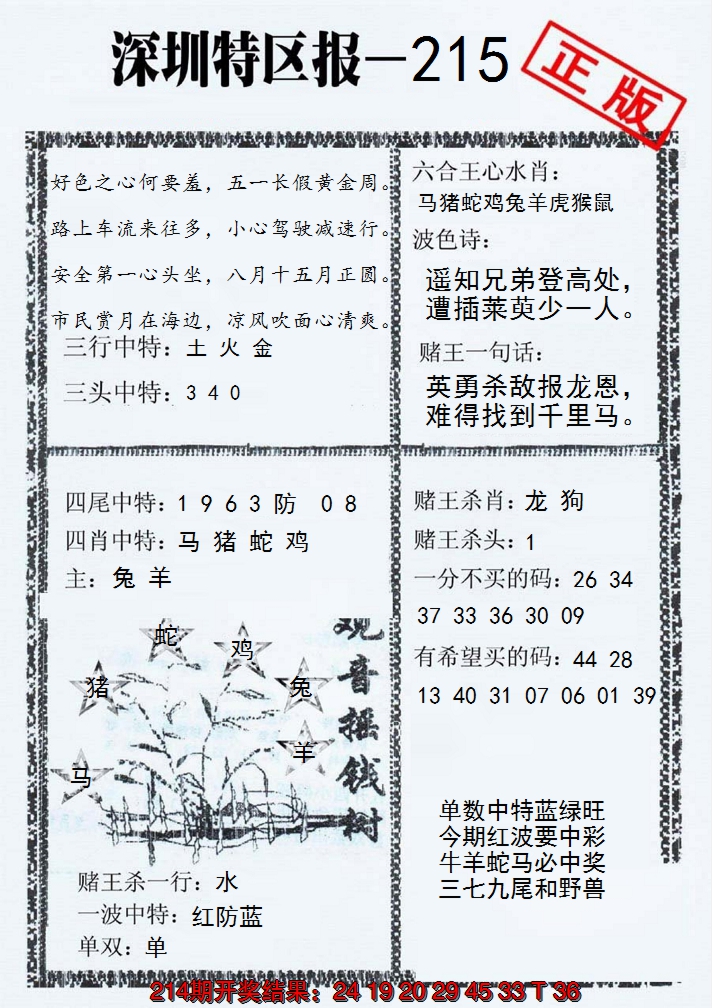 深圳特区报－215
正版
好色之心何要羞，五一长假黄金周。
路上车流来往多，小心驾驶减速行。
安全第一心头坐，八月十五月正圆。
市民赏月在海边，凉风吹面心清爽。
三行中特：土 火 金
三头中特：3 4 0
六合王心水肖：
马猪蛇鸡兔羊虎猴鼠
波色诗：
遥知兄弟登高处，
遭插莱萸少一人。
赌王一句话：
英勇杀敌报龙恩，
难得找到千里马。
四尾中特：1 9 6 3 防 0 8
四肖中特：马 猪 蛇 鸡
主：兔 羊
蛇
鸡
猪
兔
羊
马
观音摇钱树
赌王杀一行：水
一波中特：红防蓝
单双：单
赌王杀肖：龙 狗
赌王杀头：1
一分不买的码：26 34
37 33 36 30 09
有希望买的码：44 28
13 40 31 07 06 01 39
单数中特蓝绿旺
今期红波要中彩
牛羊蛇马必中奖
三七九尾和野兽
214期开奖结果：24 19 20 29 45 33 T 36